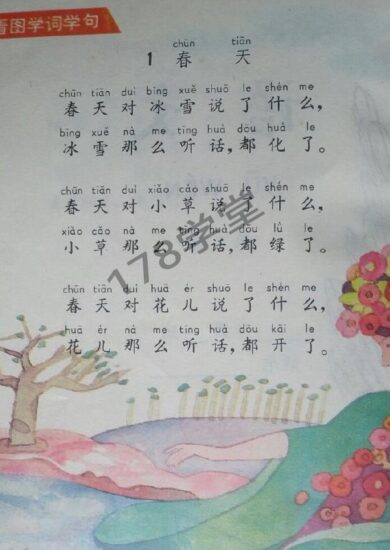 看图学词学句
chūn tiān
1 春 天
chūn tiān duì bīng xuě shuō le shén me
春天对冰雪说了什么,
bīng xuě nà me tīng huà dōu huà le
冰雪那么听话,都化了。
chūn tiān duì xiǎo cǎo shuō le shén me
春天对小草说了什么,
xiǎo cǎo nà me tīng huà dōu lǜ le
小草那么听话,都绿了。
chūn tiān duì huā ér shuō le shén me
春天对花儿说了什么,
huā ér nà me tīng huà dōu kāi le
花儿那么听话,都开了。
178学堂